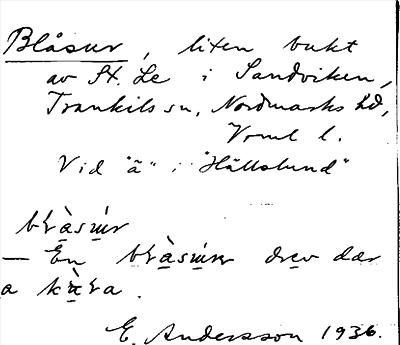 Blåsur, liten bukt
av St. Le i Sandviken,
Trankils sn, Nordmarks hd,
Vrml l.
Vid "ä" i "Hällslund"
— En drev där
a
E. Andersson 1936.